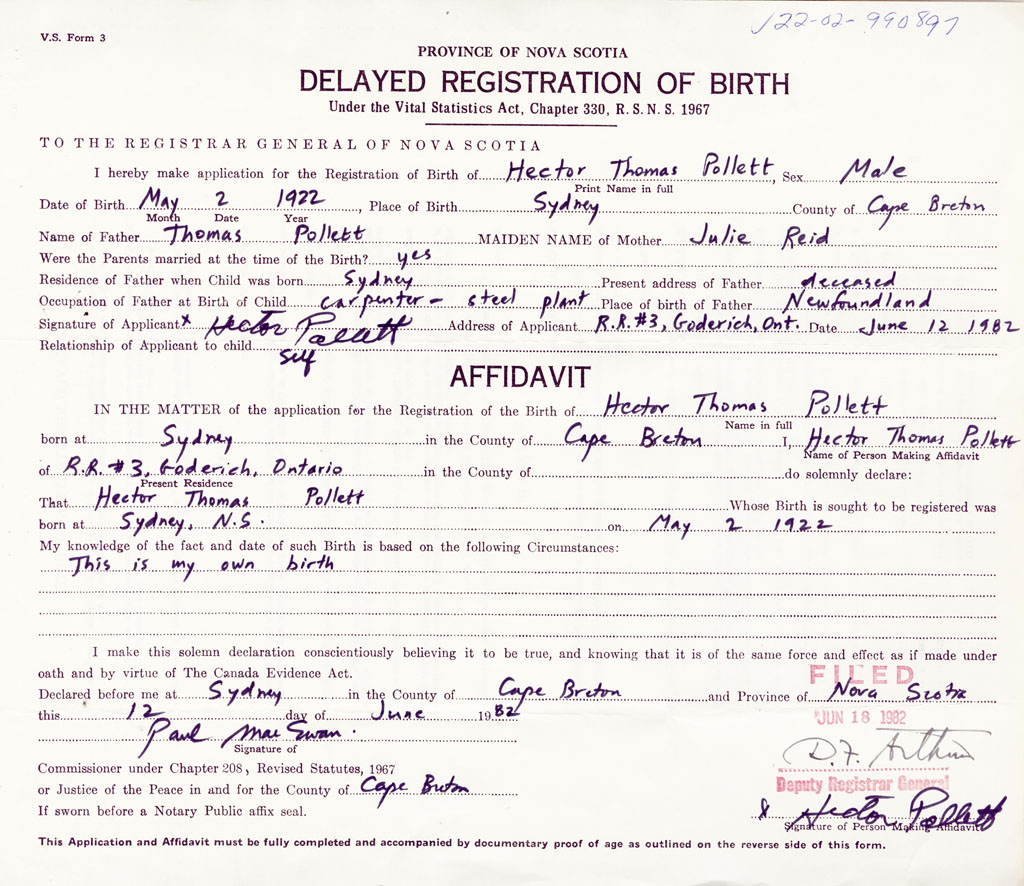 122-02-990897
V.S. Form 3
PROVINCE OF NOVA SCOTIA
DELAYED REGISTRATION OF BIRTH
Under the Vital Statistics Act, Chapter 330, R.S.N.S. 1967
TO THE REGISTRAR GENERAL OF NOVA SCOTIA
I hereby make application for the Registration of Birth of Hector Thomas Pollett, Sex Male
Print Name in full
Date of Birth May 2 1922, Place of Birth Sydney County of Cape Breton
Month Date Year
Name of Father Thomas Pollett MAIDEN NAME of Mother Julie Reid
Were the Parents married at the time of the Birth? yes
Residence of Father when Child was born Sydney Present address of Father deceased
Occupation of Father at Birth of Child carpenter - steel plant Place of birth of Father Newfoundland
Signature of Applicant x Hector Pollett Address of Applicant R.R.#3, Goderich, Ont. Date June 12 1982
Relationship of Applicant to child self
AFFIDAVIT
IN THE MATTER of the application for the Registration of the Birth of Hector Thomas Pollett
Name in full
born at Sydney in the County of Cape Breton I, Hector Thomas Pollett
Name of Person Making Affidavit
of R.R. #3, Goderich, Ontario in the County of do solemnly declare:
Present Residence
That Hector Thomas Pollett Whose Birth is sought to be registered was
born at Sydney, N.S. on May 2 1922
My knowledge of the fact and date of such Birth is based on the following Circumstances:
This is my own birth
I make this solemn declaration conscientiously believing it to be true, and knowing that it is of the same force and effect as if made under
oath and by virtue of The Canada Evidence Act.
FILED
Declared before me at Sydney in the County of Cape Breton and Province of Nova Scotia
this 12 day of June 1982
JUN 18 1982
Paul MacSwan.
Signature of
D.F. Arthur
Commissioner under Chapter 208, Revised Statutes, 1967
Deputy Registrar General
or Justice of the Peace in and for the County of Cape Breton
x Hector Pollett
If sworn before a Notary Public affix seal.
Signature of Person Making Affidavit
This Application and Affidavit must be fully completed and accompanied by documentary proof of age as outlined on the reverse side of this form.